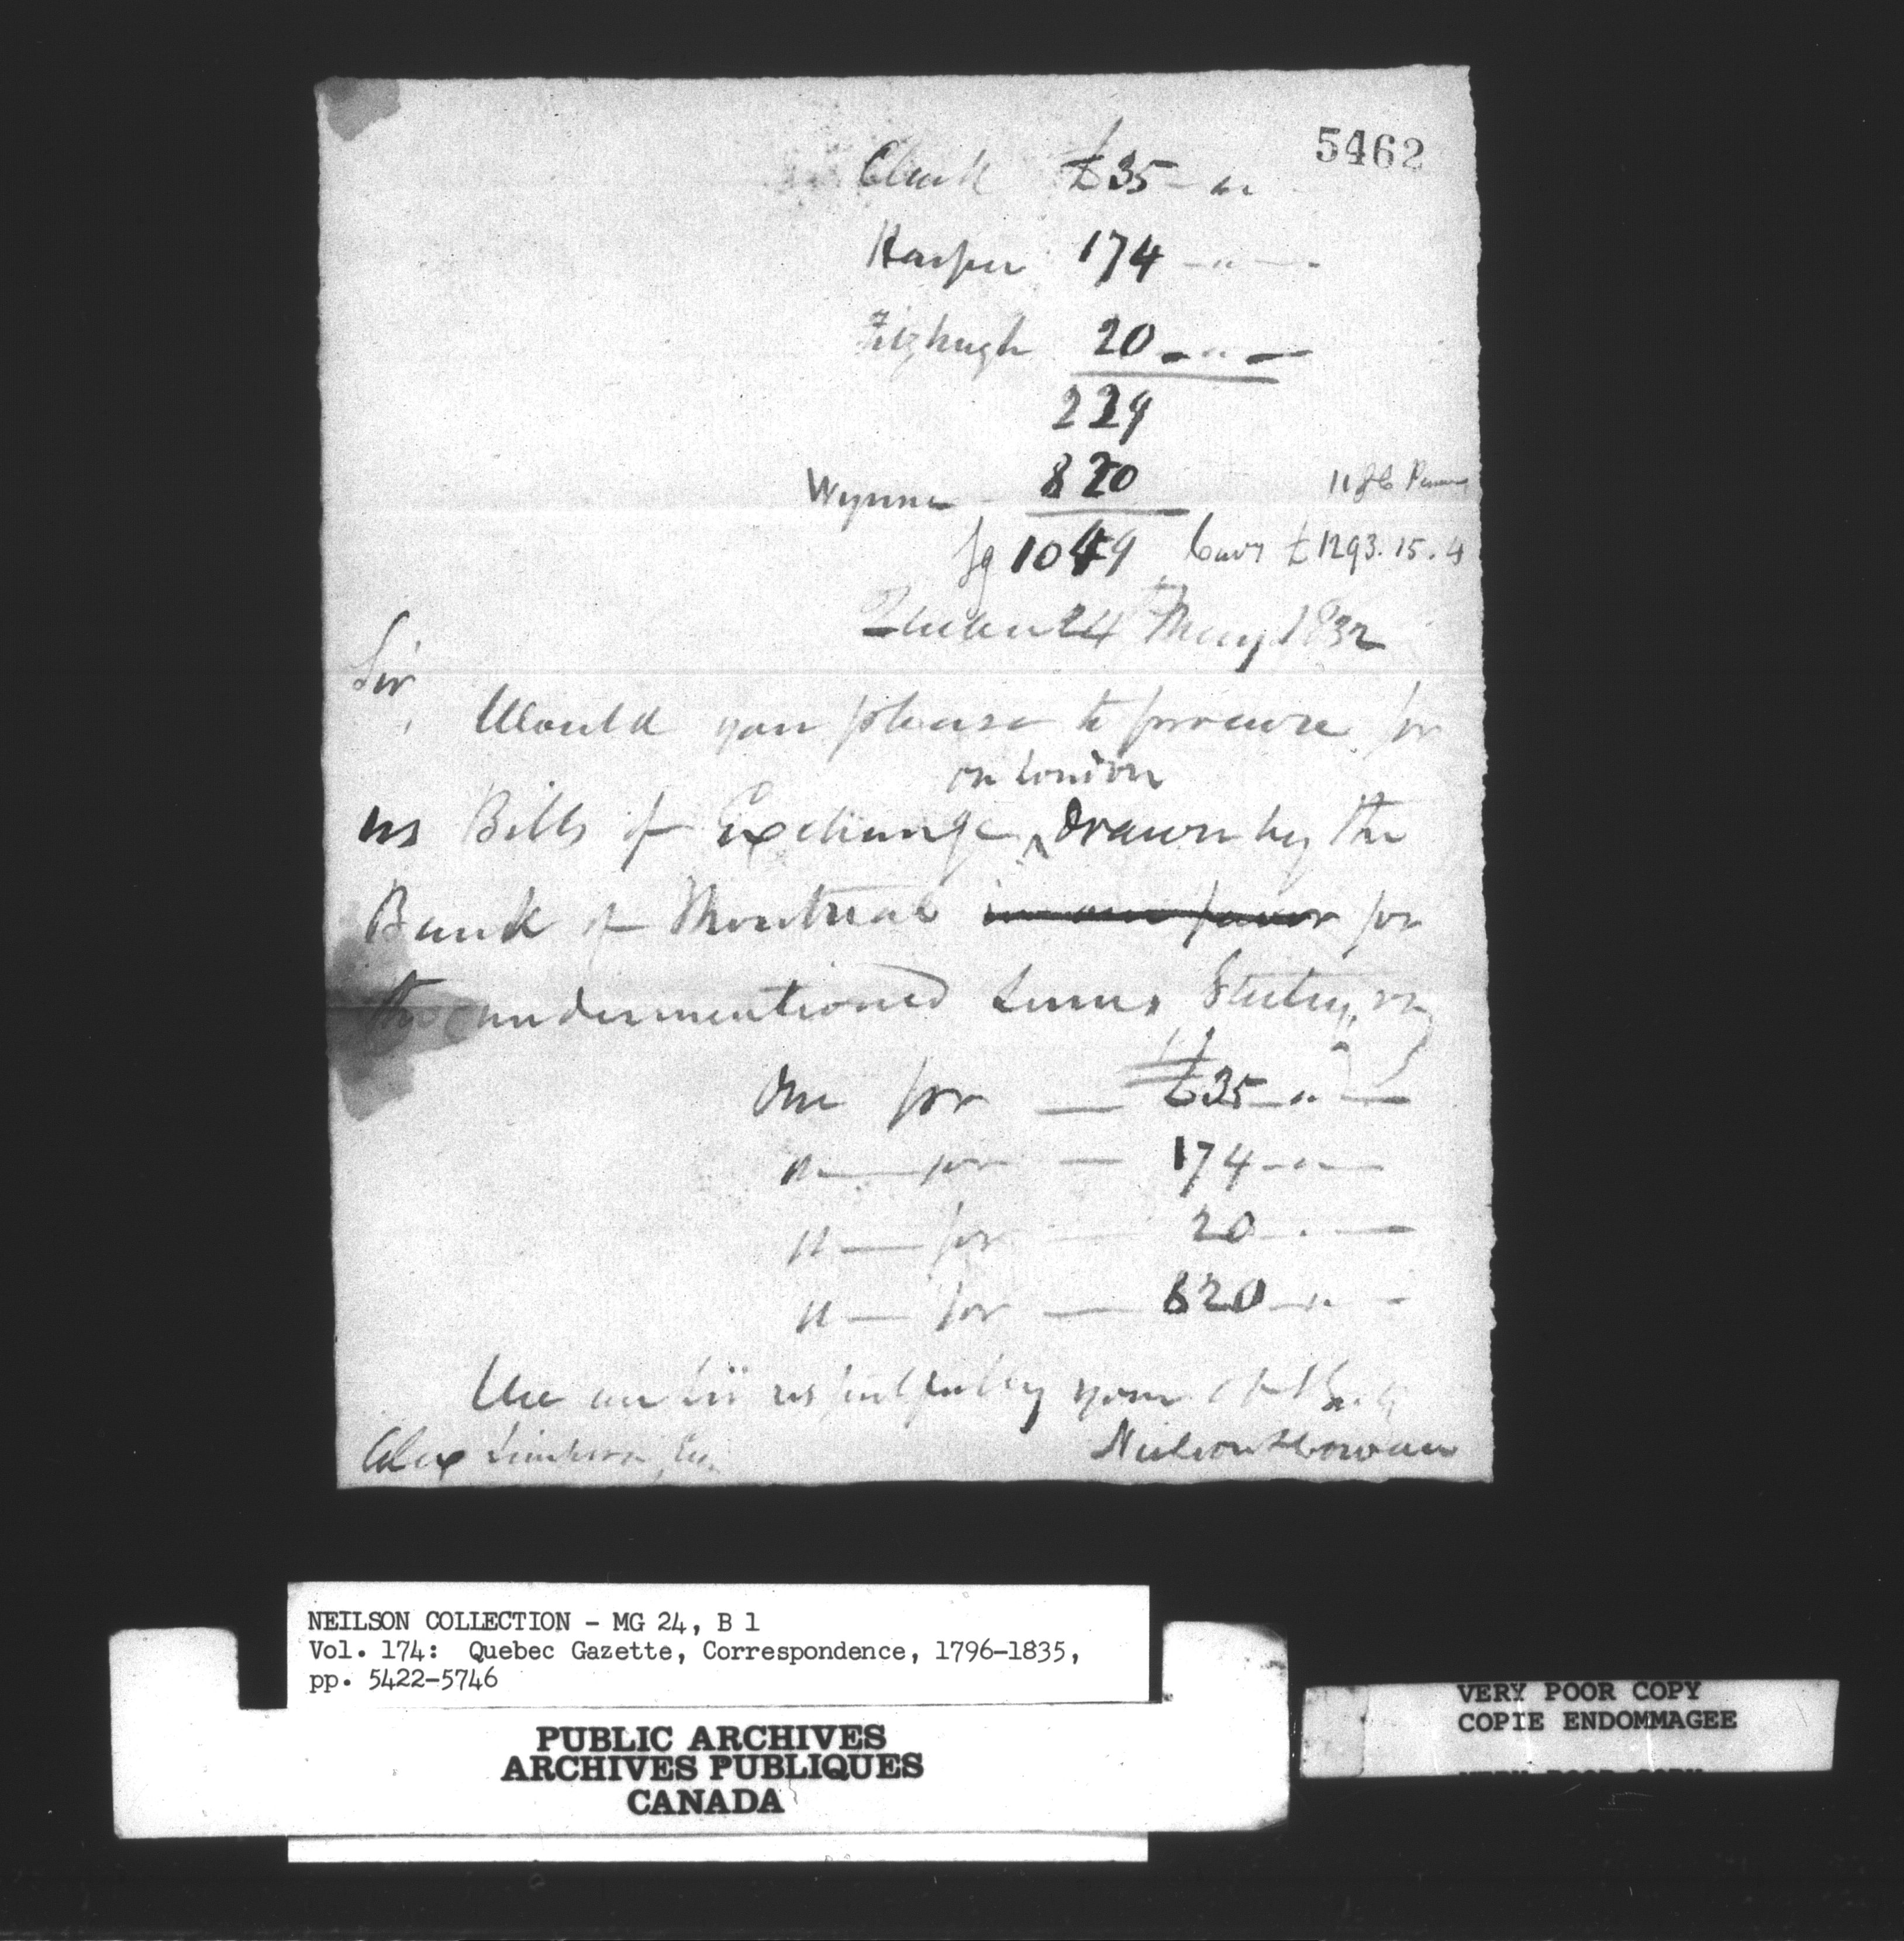 5462
Clark £35 - " -
Harper 174 - " -
Fitzhugh 20 - " -
229
Wynne 820
Sg 1049 Curr £1293.15.4
Quebec 24th May 1832
Sir,
Would you please to procure for
on London
us Bills of Exchange ^ drawn by the
Bank of Montreal in our favor for
the undermentioned Sums Sterling, viz
One for — £35 - " -
" — for — 174 - " -
" — for — 20 - " -
" — for — 820 - " -
We are Sir respectfully your
Alex Simpson Esq. Neilson & Cowan
NEILSON COLLECTION - MG 24, B 1
Vol. 174: Quebec Gazette, Correspondence, 1796-1835,
pp. 5422-5746
PUBLIC ARCHIVES
ARCHIVES PUBLIQUES
CANADA
VERY POOR COPY
COPIE ENDOMMAGEE
VERY POOR COPY